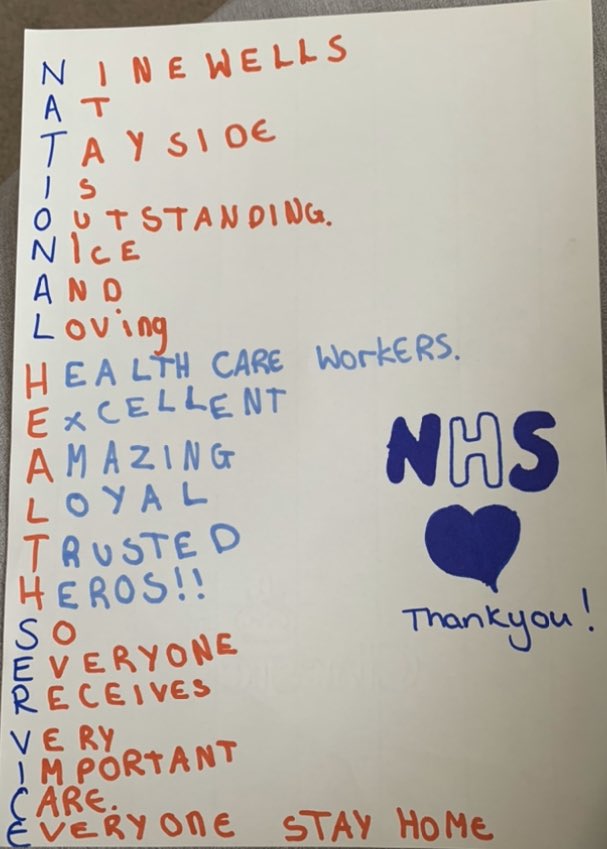 NINEWELLS
AT
TAYSIDE
IS
OUTSTANDING.
NICE
AND
Loving
HEALTH CARE WORKERS.
EXCELLENT
AMAZING
LOYAL
TRUSTED
HEROS!!
SO
EVERYONE
RECEIVES
VERY
IMPORTANT
CARE.
EVERYONE STAY HOME
NHS
Thankyou!